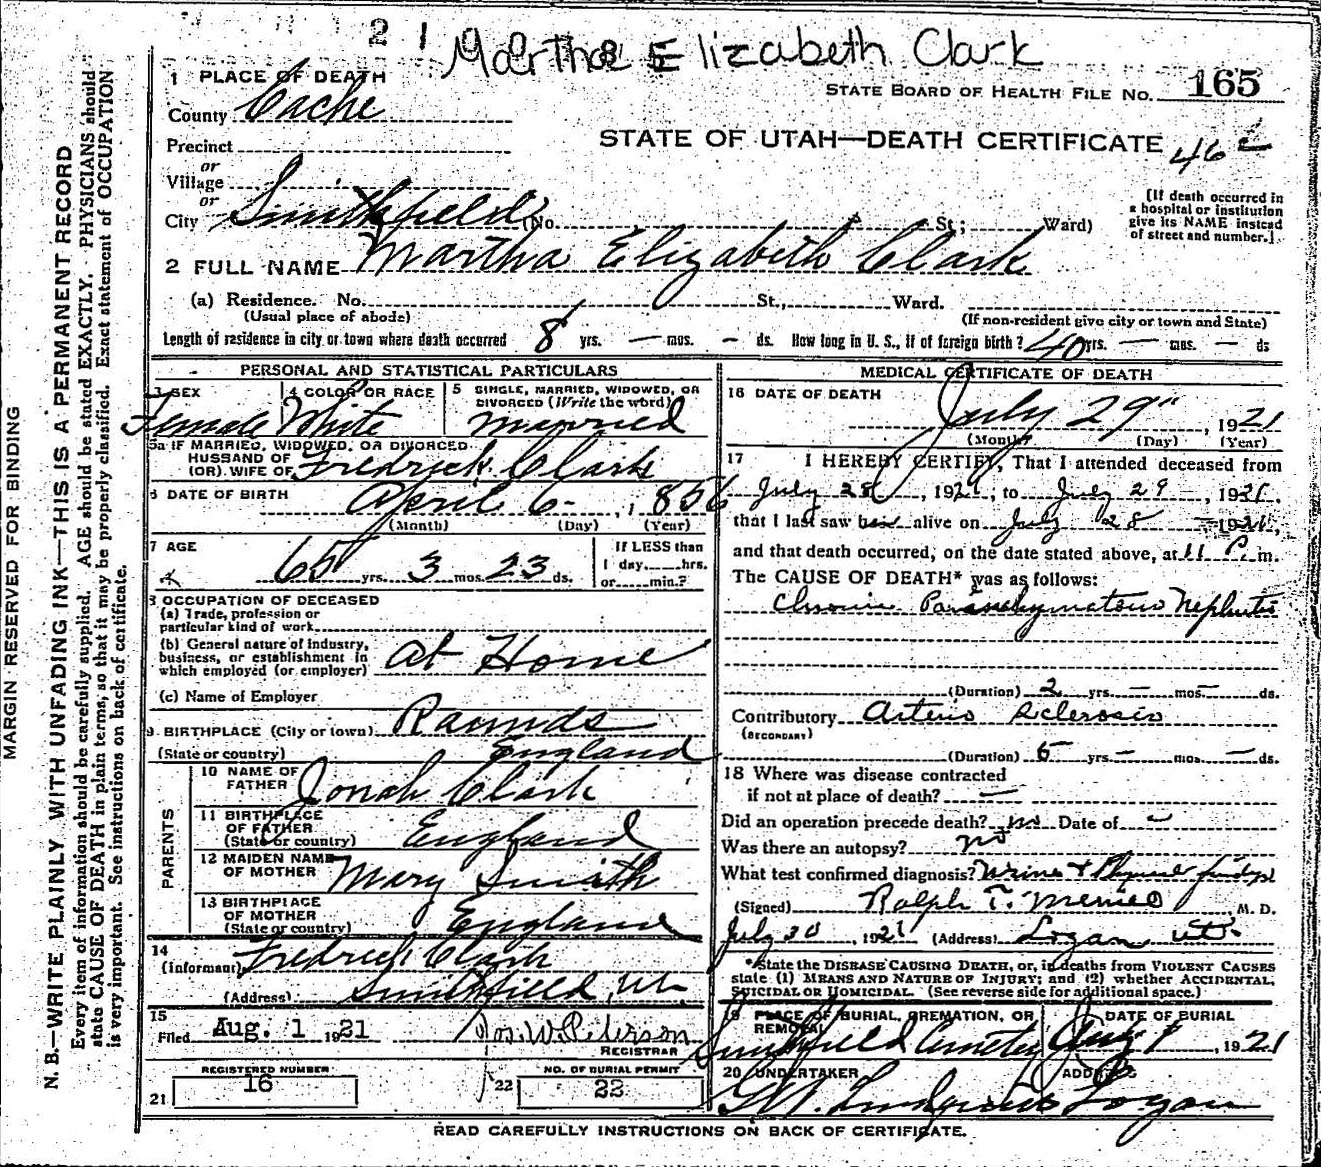 2 1
Martha Elizabeth Clark
STATE BOARD OF HEALTH FILE NO. 165
STATE OF UTAH—DEATH CERTIFICATE
46
1 PLACE OF DEATH
County Cache
Precinct
or
Village
or
City Smithfield (No. St.; Ward)
[If death occurred in
a hospital or institution
give its NAME instead
of street and number.]
2 FULL NAME Martha Elizabeth Clark
(a) Residence. No. St., Ward.
(Usual place of abode) (If non-resident give city or town and State)
Length of residence in city or town where death occurred 8 yrs. — mos. - ds. How long in U. S., if of foreign birth? 40 yrs. — mos. — ds
PERSONAL AND STATISTICAL PARTICULARS
3 SEX 4 COLOR OR RACE 5 SINGLE, MARRIED, WIDOWED, OR
DIVORCED (Write the word)
Female White Married
5a IF MARRIED, WIDOWED, OR DIVORCED
HUSBAND OF
(OR) WIFE OF Fredrick Clark
6 DATE OF BIRTH April 6 - , 1856
(Month) (Day) (Year)
7 AGE 65 yrs. 3 mos. 23 ds.
If LESS than
1 day, hrs.
or min.?
8 OCCUPATION OF DECEASED
(a) Trade, profession or
particular kind of work
(b) General nature of industry,
business, or establishment in
which employed (or employer) at Home
(c) Name of Employer
9. BIRTHPLACE (City or town) Raunds
(State or country) England
PARENTS
10 NAME OF
FATHER Jonah Clark
11 BIRTHPLACE
OF FATHER
(State or country) England
12 MAIDEN NAME
OF MOTHER Mary Smith
13 BIRTHPLACE
OF MOTHER
(State or country) England
14
(Informant) Fredrick Clark
(Address) Smithfield, Ut.
15
Filed Aug. 1 1921 Jos. W. Peterson
REGISTRAR
REGISTERED NUMBER NO. OF BURIAL PERMIT
21 16 22 22
MEDICAL CERTIFICATE OF DEATH
16 DATE OF DEATH
July 29" , 1921
(Month) (Day) (Year)
17 I HEREBY CERTIFY, That I attended deceased from
July 28 , 1921, to July 29 , 1921,
that I last saw her alive on July 28 1921,
and that death occurred, on the date stated above, at 11 P. m.
The CAUSE OF DEATH* was as follows:
Chronic Parenchymatous Nephritis
(Duration) 2 yrs. — mos — ds.
Contributory Arterio Sclerosis
(SECONDARY)
(Duration) 5 yrs. — mos. — ds.
18 Where was disease contracted
if not at place of death? —
Did an operation precede death? no Date of —
Was there an autopsy? no
What test confirmed diagnosis? Urine + Physical findgs
(Signed) Ralph T. Merrill , M. D.
July 30 , 1921 (Address) Logan Ut.
*State the DISEASE CAUSING DEATH, or, in deaths from VIOLENT CAUSES
state (1) MEANS AND NATURE OF INJURY; and (2) whether ACCIDENTAL,
SUICIDAL OR HOMICIDAL. (See reverse side for additional space.)
19 PLACE OF BURIAL, CREMATION, OR
REMOVAL DATE OF BURIAL
Smithfield Cemetery Aug 1 , 1921
20 UNDERTAKER ADDRESS
Logan
READ CAREFULLY INSTRUCTIONS ON BACK OF CERTIFICATE.
MARGIN RESERVED FOR BINDING
N. B.—WRITE PLAINLY, WITH UNFADING INK—THIS IS A PERMANENT RECORD
Every item of information should be carefully supplied. AGE should be stated EXACTLY. PHYSICIANS should
state CAUSE OF DEATH in plain terms, so that it may be properly classified. Exact statement of OCCUPATION
is very important. See instructions on back of certificate.